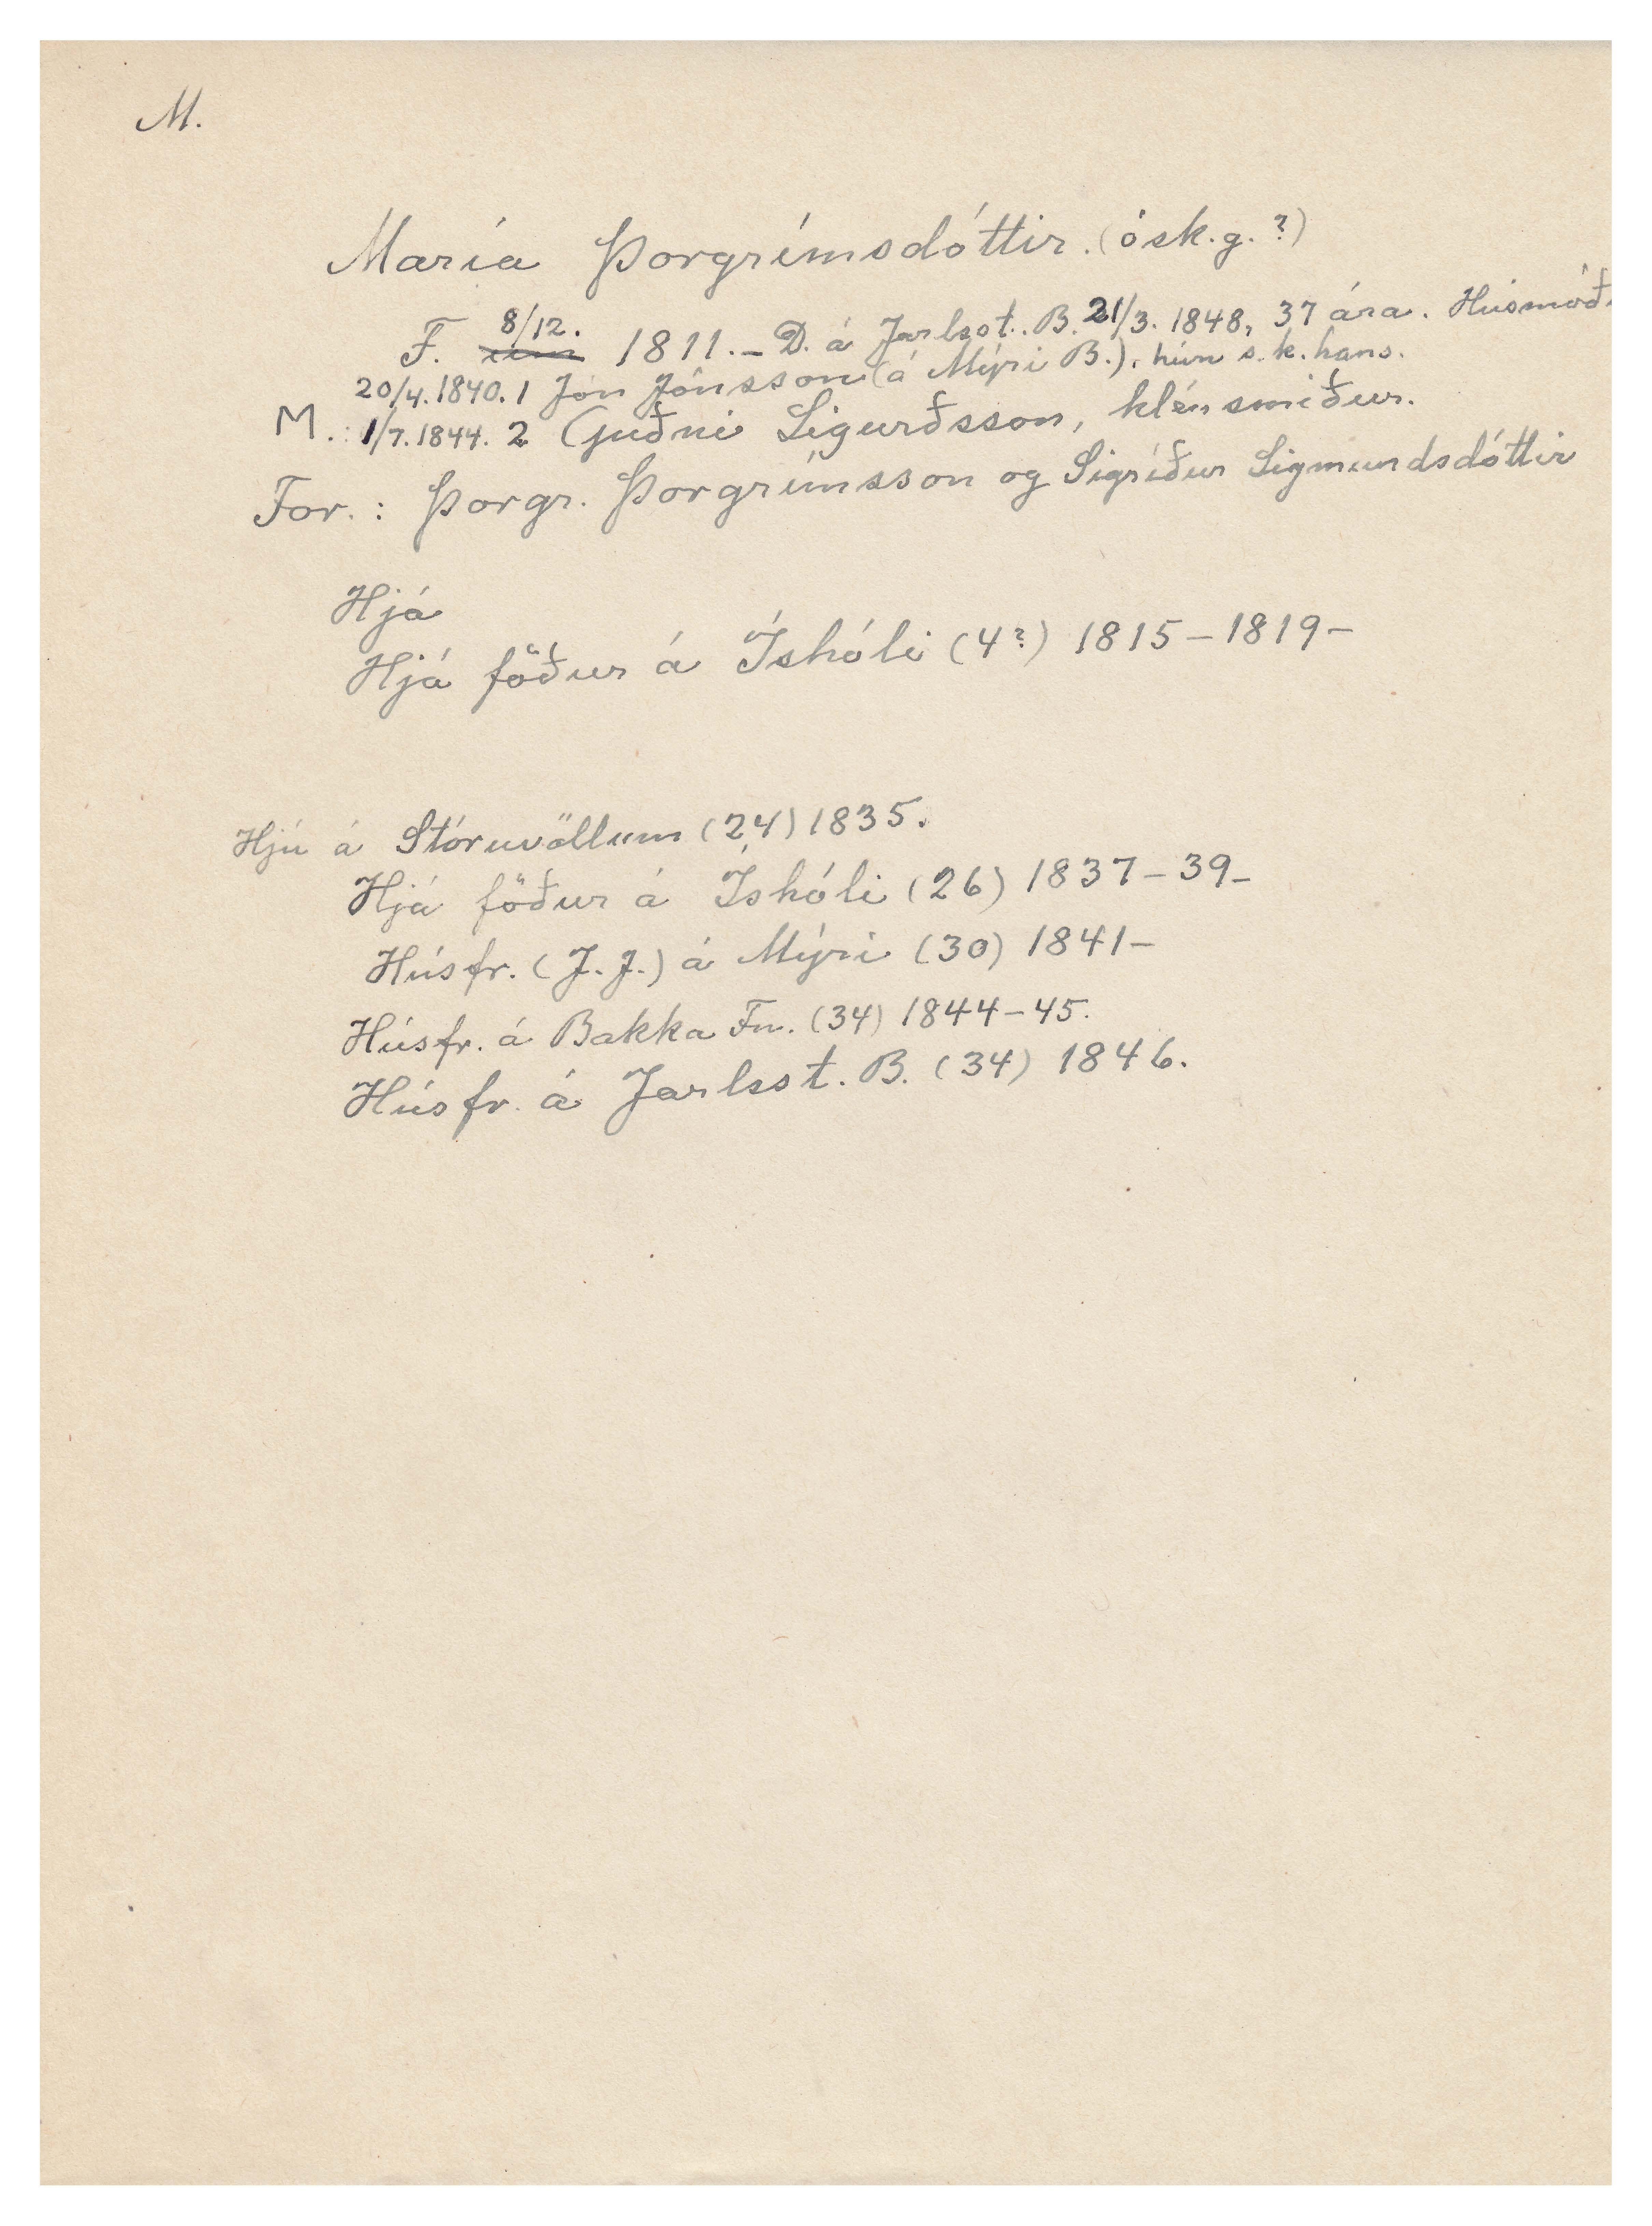 M.
María Þorgrímsdóttir. (ósk.g.?)
F. um 8/12. 1811. – D. á Jarlsst. B. 21/3. 1848, 37 ára. Húsmóð.
20/4.1840. 1 Jón Jónsson (á Mýri B.), hún s.k. hans.
M.: 1/7.1844. 2 Guðni Sigurðsson, klénsmiður.
For.: Þorgr. Þorgrímsson og Sigríður Sigmundsdóttir
Hjá
Hjá föður á Íshóli (4?) 1815–1819–
Hjú á Stóruvöllum (24) 1835.
Hjá föður á Íshóli (26) 1837–39–
Húsfr. (J.J.) á Mýri (30) 1841–
Húsfr. á Bakka Fn. (34) 1844–45.
Húsfr. á Jarlsst. B. (34) 1846.